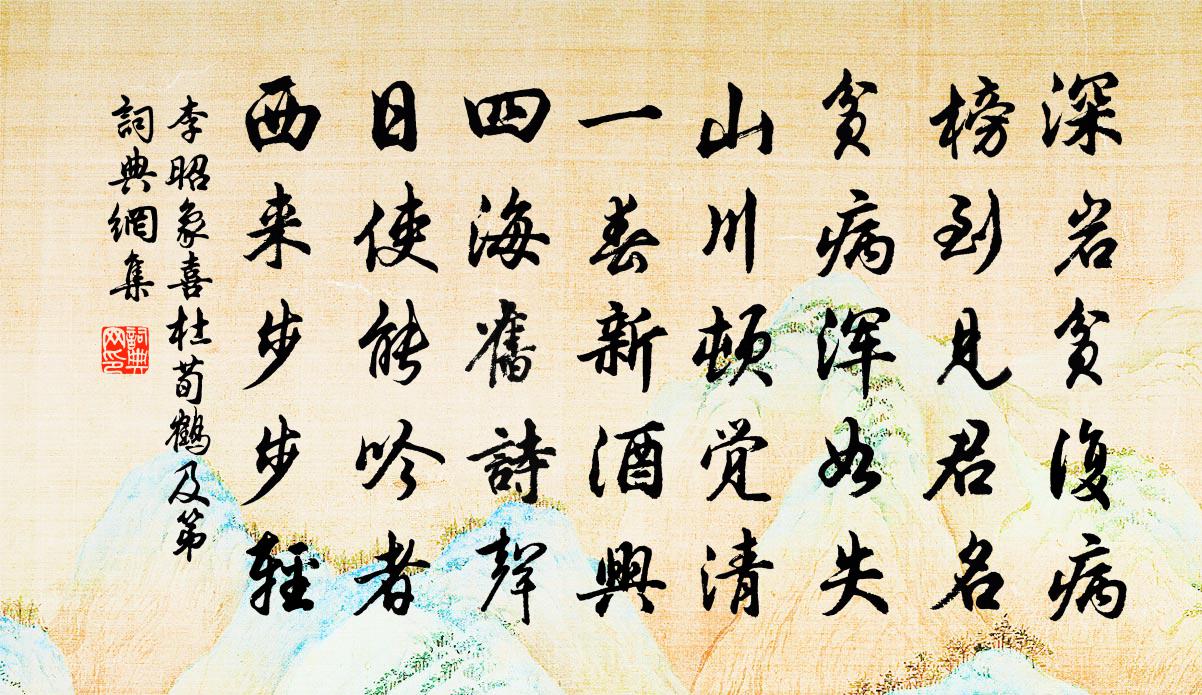 深岩贫復病
榜到見君名
贫病浑如失
山川頓觉清
一春新酒興
四海舊詩聲
日使能吟者
西来步步輕
李昭象喜杜荀鶴及第
詞典網集
詞典
网印